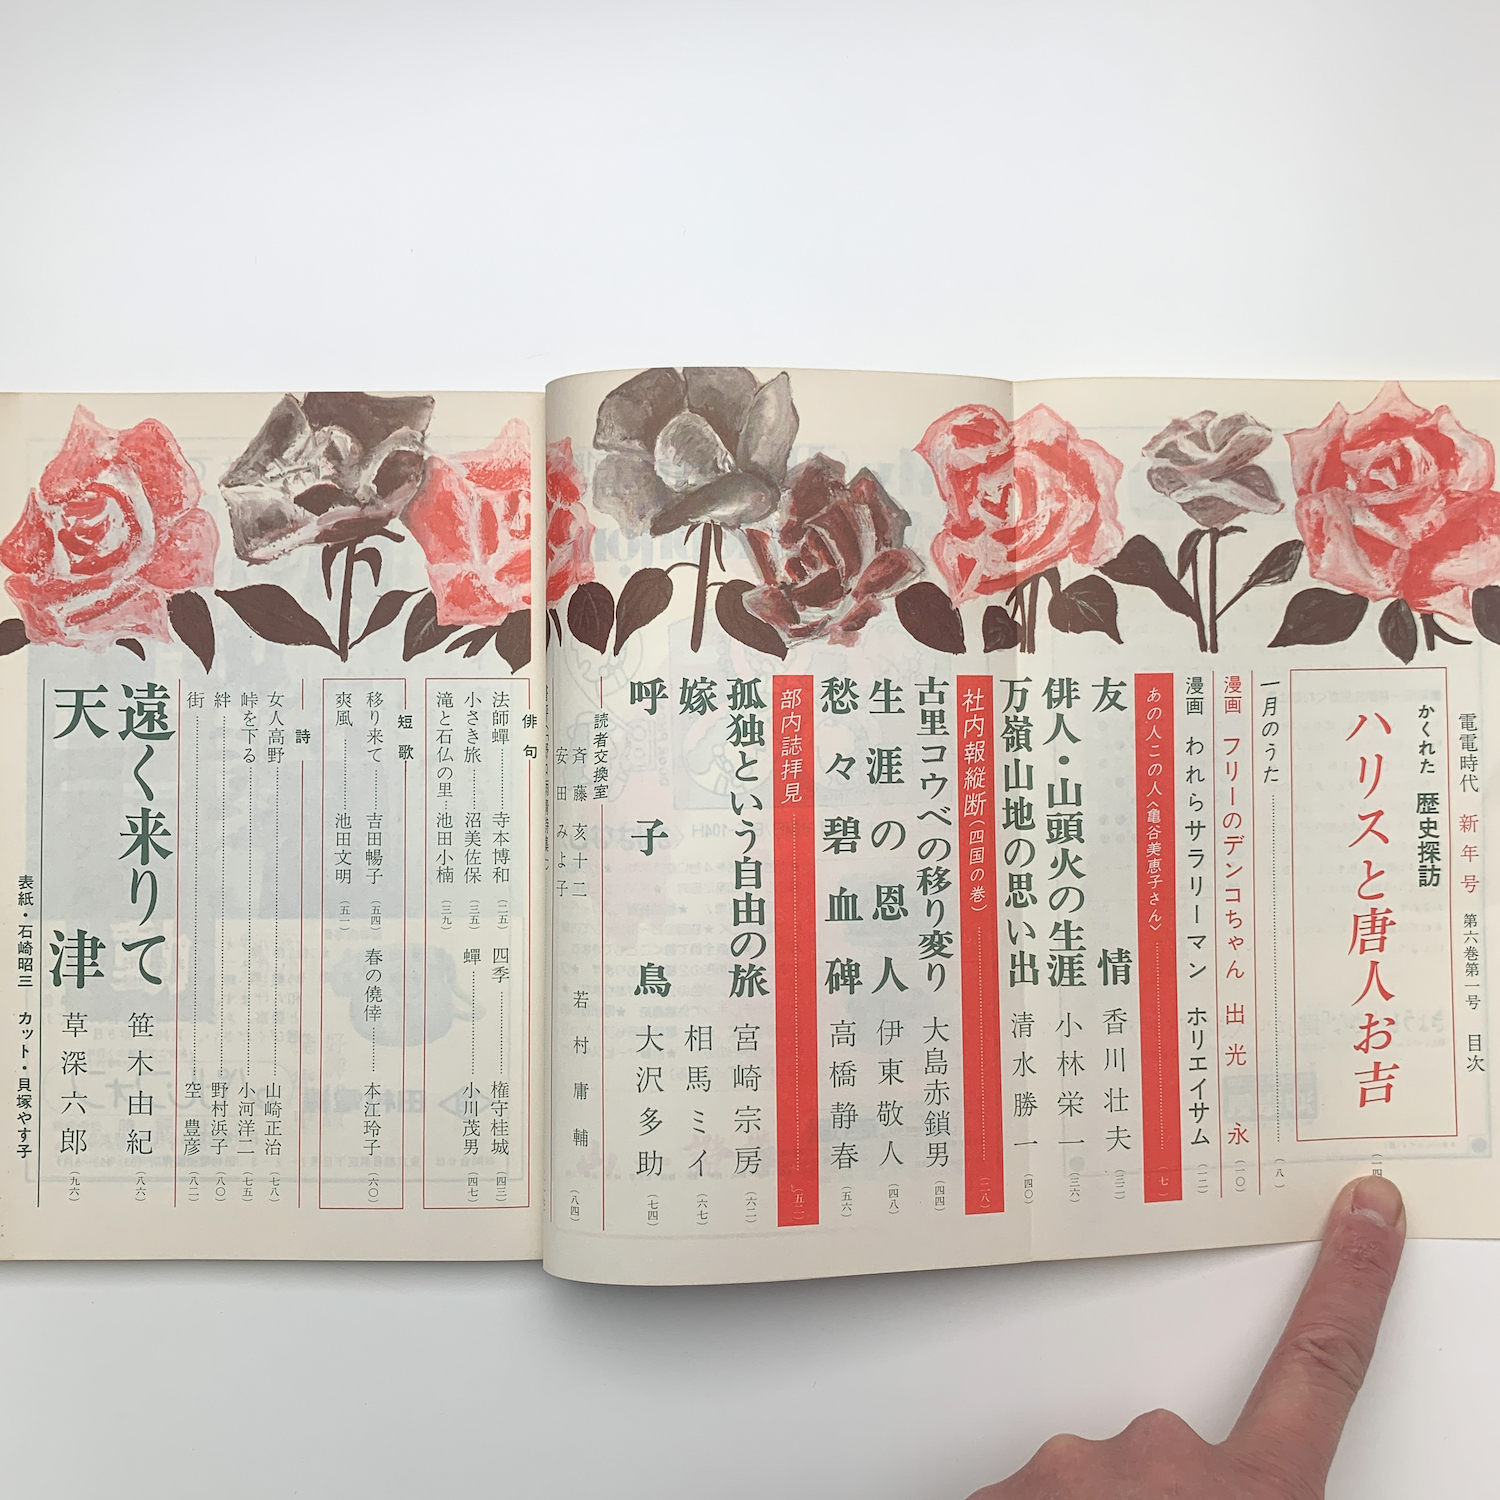 電電時代 新年号 第六巻第一号 目次
かくれた 歴史探訪
ハリスと唐人お吉
一月のうた（八）
漫画 フリーのデンコちゃん 出光 永（一〇）
漫画 われらサラリーマン ホリエイサム（一二）
あの人この人〈亀谷美恵子さん〉（七）
友情 香川壮夫（三二）
俳人・山頭火の生涯 小林栄一（三六）
万嶺山地の思い出 清水勝一（四〇）
社内報縦断（四国の巻）（二八）
古里コウベの移り変り 大島赤鎖男（四四）
生涯の恩人 伊東敬人（四八）
愁々碧血碑 高橋静春（五六）
部内誌拝見（五二）
孤独という自由の旅 宮崎宗房（六二）
嫁 相馬ミイ（六七）
呼子鳥 大沢多助（七四）
読者交換室
斉藤亥十二 若村庸輔
安田みよ子（八四）
俳句
法師蟬 寺本博和（二五） 四季 権守桂城（四三）
小さき旅 沼美佐保（三五） 蟬 小川茂男（四七）
滝と石仏の里 池田小楠（三九）
短歌
移り来て 吉田暢子（五四） 春の僥倖 本江玲子（六〇）
爽風 池田文明（五一）
詩
女人高野 山崎正治（七八）
峠を下る 小河洋二（七五）
絆 野村浜子（八〇）
街 空 豊彦（八二）
遠く来りて 笹木由紀（八六）
天津 草深六郎（九六）
表紙・石崎昭三 カット・貝塚やす子